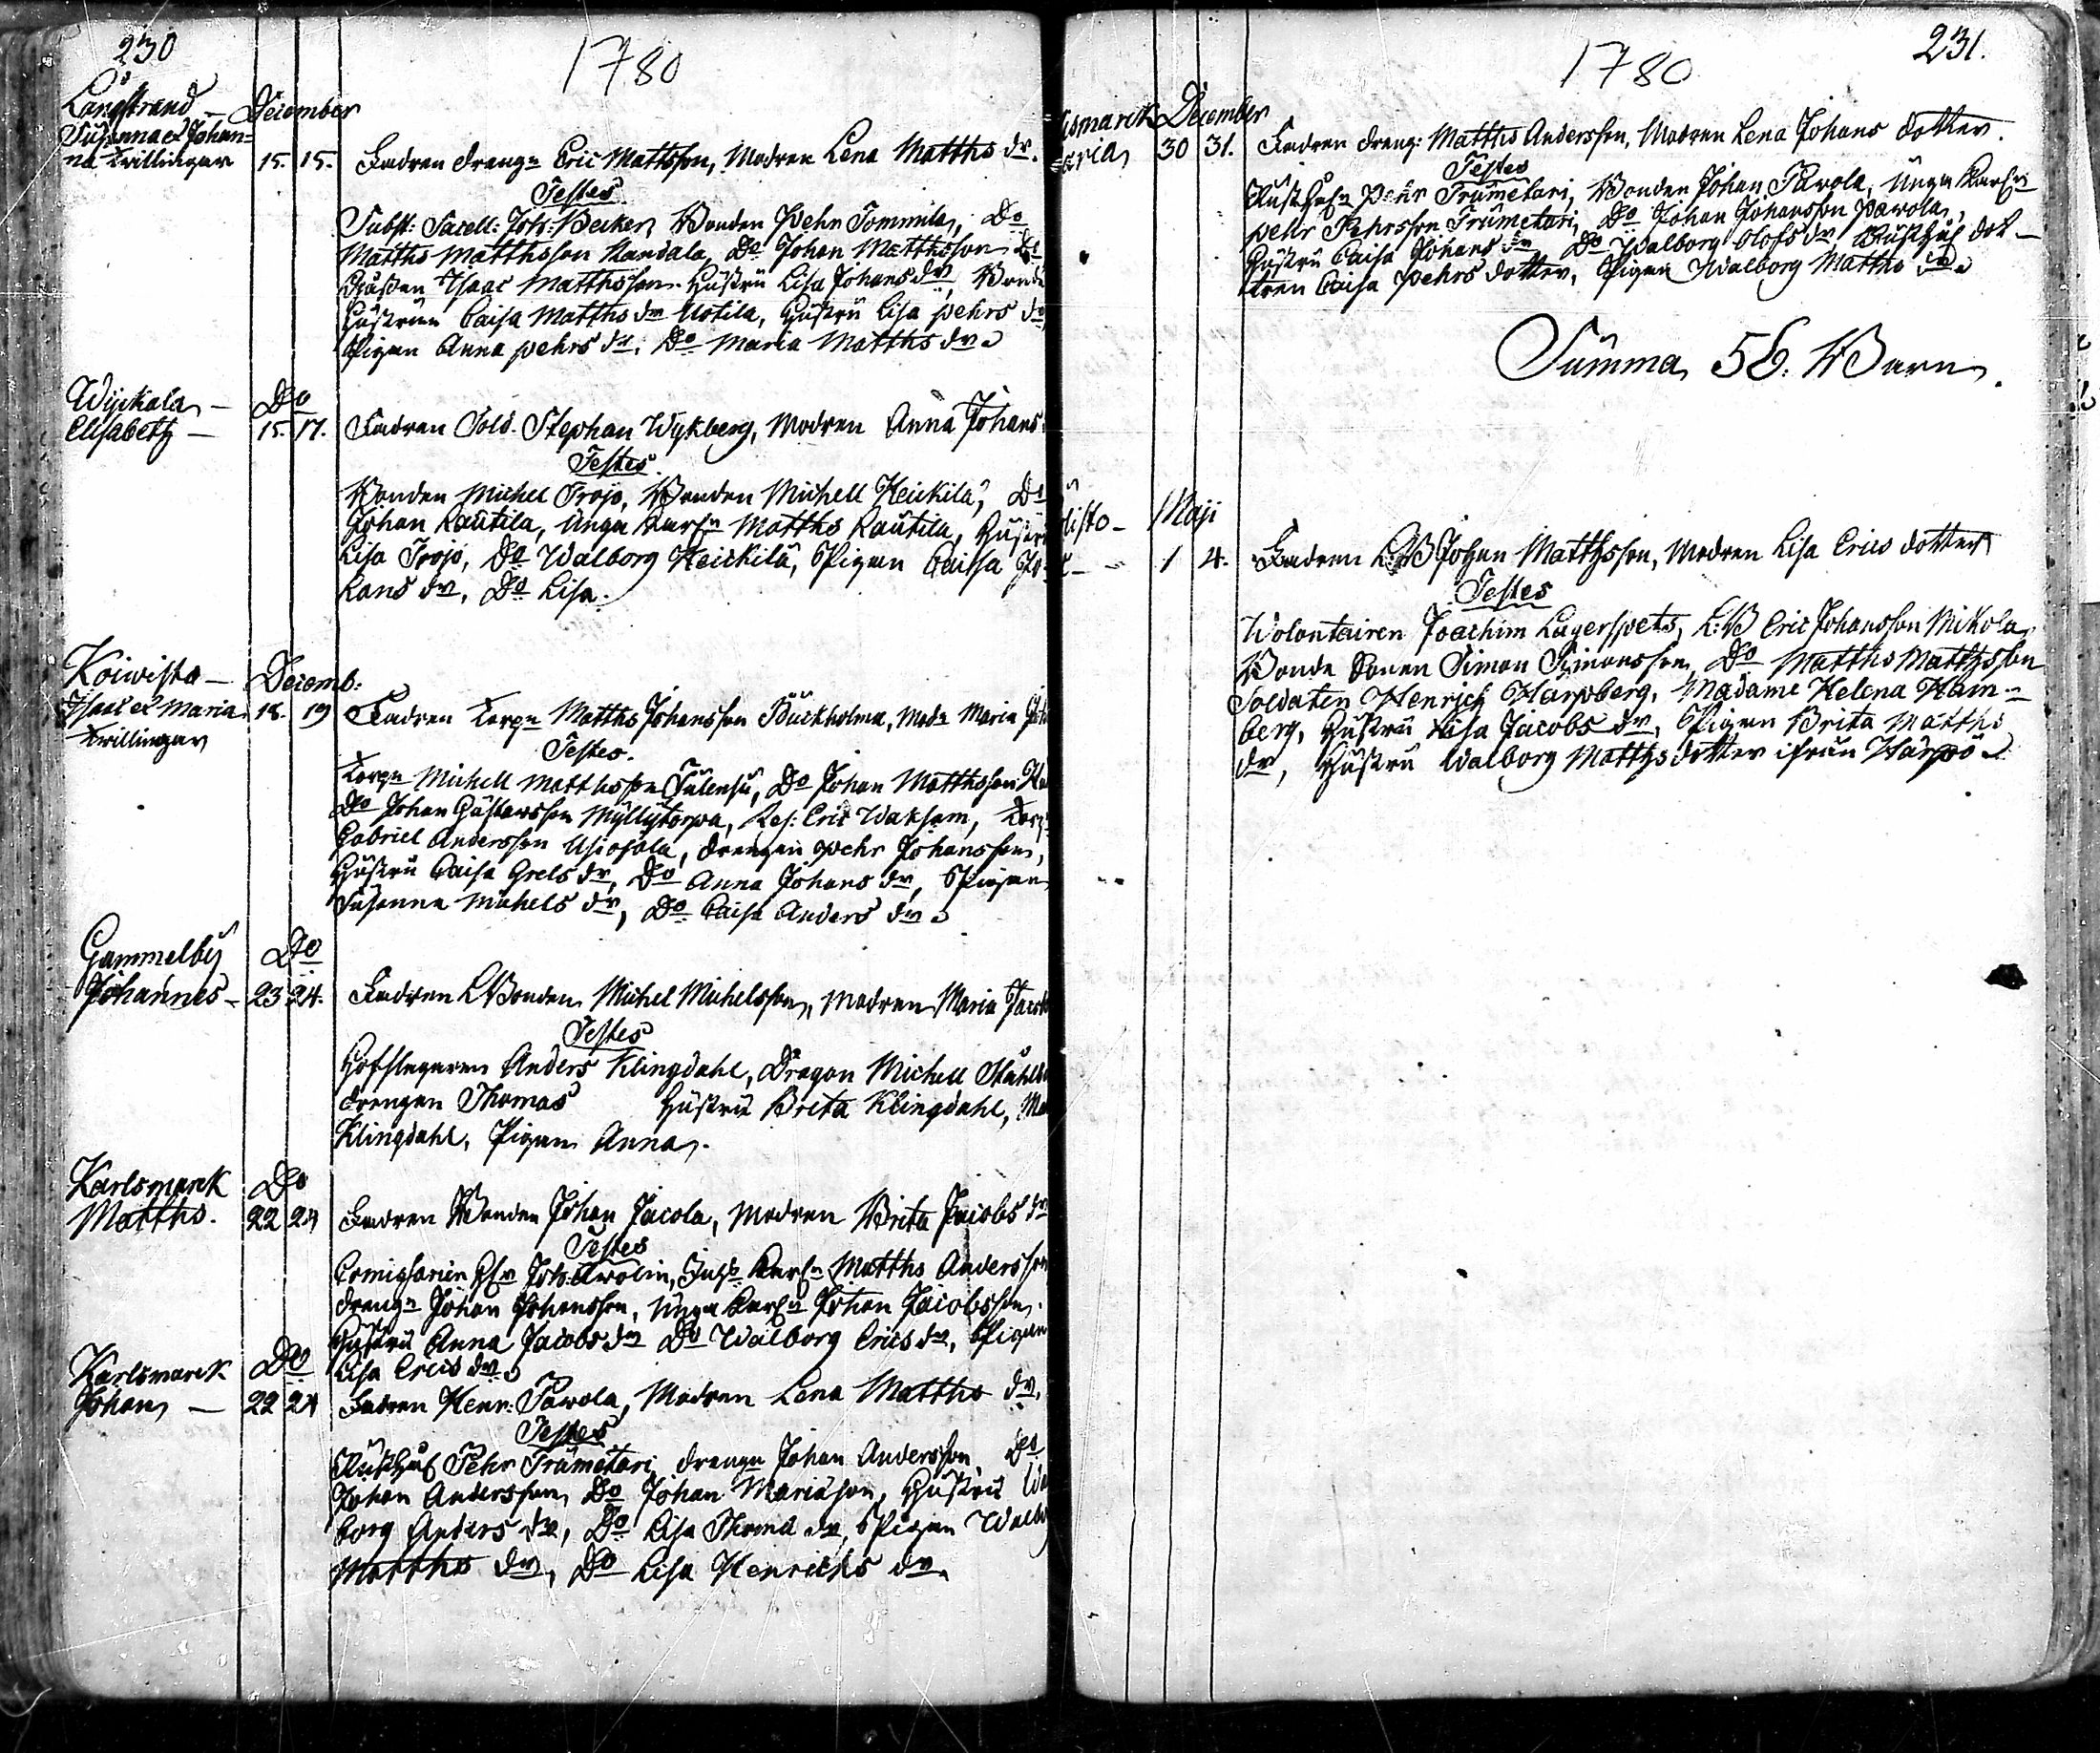 230
1780
Långstrand – December
Susanna et Johan-
na Twillingar 15. 15. Fadren Dreng:n Eric Mattsson, Modren Lena Matths dr.
Testes
Subst: Sacell: Joh: Becker, Bonden Pehr Tommila, Do
Matths Matthsson Handala, Do Johan Matthsson
Isaac Matthsson. Hustru Lisa Johans dr, Bonde
Hustrun Caisa Matths dr Uotila, Hustru Lisa Pehrs dr
Pigan Anna Pehrs dr. Do Maria Matths dr.
Wykala – Do
Elisabeth – 15. 17. Fadren Sold. Stephan Wykberg, Modren Anna Johans
Testes
Bonden Michel Trojo, Bonden Michell Heickilä, Do
Johan Rautila, Unga Karl:n Matths Rautila, Hustru
Lisa Trojo, Do Walborg Heickilä, Pigan Caisa Jo-
hans dr, Do Lisa.
Koiwisto – Decemb:
Isaac et Maria 18. 19 Fadren Torp:n Matths Johansson Buckholma, Mod:n Maria Joh
Twillingar
Testes.
Torp:n Michell Matthsson Sulensu, Do Johan Matthsson
Do Johan Gustavsson Myllytorpa, Res: Eric Waksam, Torp:
Gabriel Andersson Usiosala, Drengen Pehr Johansson,
Hustru Caisa Grels dr, Do Anna Johans dr, Pigan
Susanna Michels dr, Do Caisa Anders dr.
Gammelby Do
Johannes – 23 24. Fadren LBonden Michel Michelsson, Modren Maria Jacob
Testes
Hofslagaren Anders Klingdahl, Dragon Michell Ståhlb
Drengen Thomas Hustru Brita Klingdahl,
Klingdahl, Pigan Anna.
Karlsmarck Do
Matths. 22 24 Fadren Bonden Johan Jacola, Modren Brita Jacobs dr
Testes
Comissarien H:r Joh: Arolin, Karl:n Matths Andersson
Dreng:n Johan Johansson, Unga Karl:n Johan Jacobsson.
Hustru Anna Jacobs dr Do Walborg Erics dr, Pigan
Lisa Erics dr.
Karlsmarck Do
Johan – 22 24 Fadren Henr: Pawola, Modren Lena Matths dr.
Testes
Rusth: Pehr Trumetari, Drengn Johan Andersson, Do
Johan Andersson, Do Johan Mariäson, Hustru Wal
borg Anders dr, Do Lisa Thoma dr, Pigan Walbo
Matths dr, Do Lisa Henrichs dr.
1780
231.
lsmarck December
aria 30 31. Fadren Dreng: Matths Andersson, Modren Lena Johans dotter.
Testes
Rusth:n Pehr Trumetari, Bonden Johan Pawola, Unga Karl:n
Pehr Pehrsson Trumetari, Do Johan Johansson Pawola,
Hustru Caisa Johans dr Do Walborg Olofs dr, Rusth: dot-
tren Caisa Pehrs dotter, Pigan Walborg Matths dr.
Summa 56. Barn.
isto – Maji
1 4. Fadren L:B Johan Matthsson, Modren Lisa Erics dotter
Testes
Volontairen Joachim Lagerspets, L:B Eric Johansson Mikola,
Bonde Sonen Simon Simonsson, Do Matths Matthsson
Soldaten Henrich Harpberg, Madame Helena Ham-
berg, Hustru Lisa Jacobs dr, Pigan Brita Matths
dr, Hustru Walborg Matths dotter ifrån Harpö.